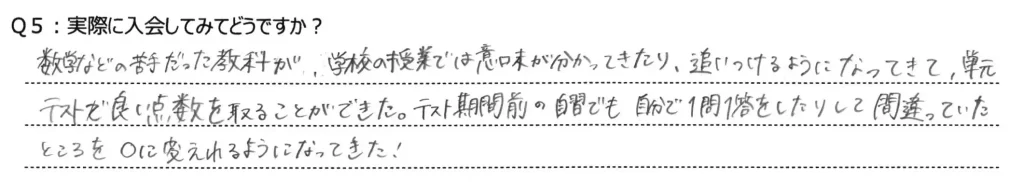 Q5：実際に入会してみてどうですか？
数学などの苦手だった教科が、学校の授業では意味が分かってきたり、追いつけるようになってきて、単元
テストで良い点数を取ることができた。テスト期間前の自習でも自分で1問1答をしたりして間違っていた
ところを○に変えれるようになってきた！